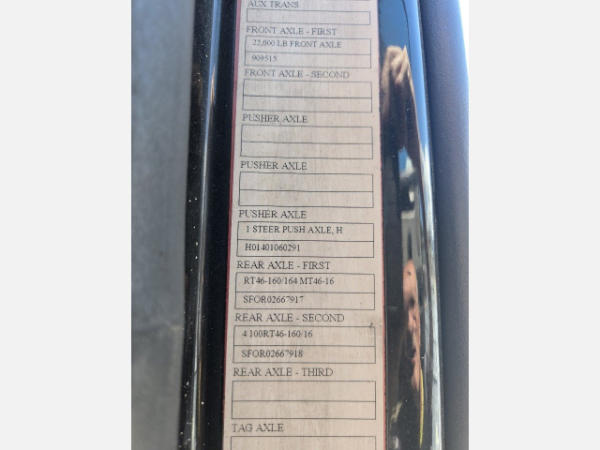 AUX TRANS
FRONT AXLE - FIRST
22,800 LB FRONT AXLE
909515
FRONT AXLE - SECOND
PUSHER AXLE
PUSHER AXLE
PUSHER AXLE
1 STEER PUSH AXLE, H
H01401060291
REAR AXLE - FIRST
RT46-160/164 MT46-16
SFOR02667917
REAR AXLE - SECOND
4 100RT46-160/16
SFOR02667918
REAR AXLE - THIRD
TAG AXLE